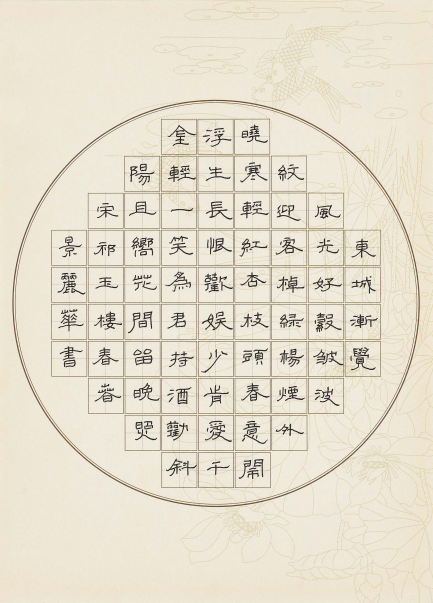 東城漸覺
風光好縠皺波
紋迎客棹綠楊煙外
曉寒輕紅杏枝頭春意鬧
浮生長恨歡娛少肯愛千
金輕一笑為君持酒勸斜
陽且嚮花間留晚照
宋祁玉樓春萅
景麗華書